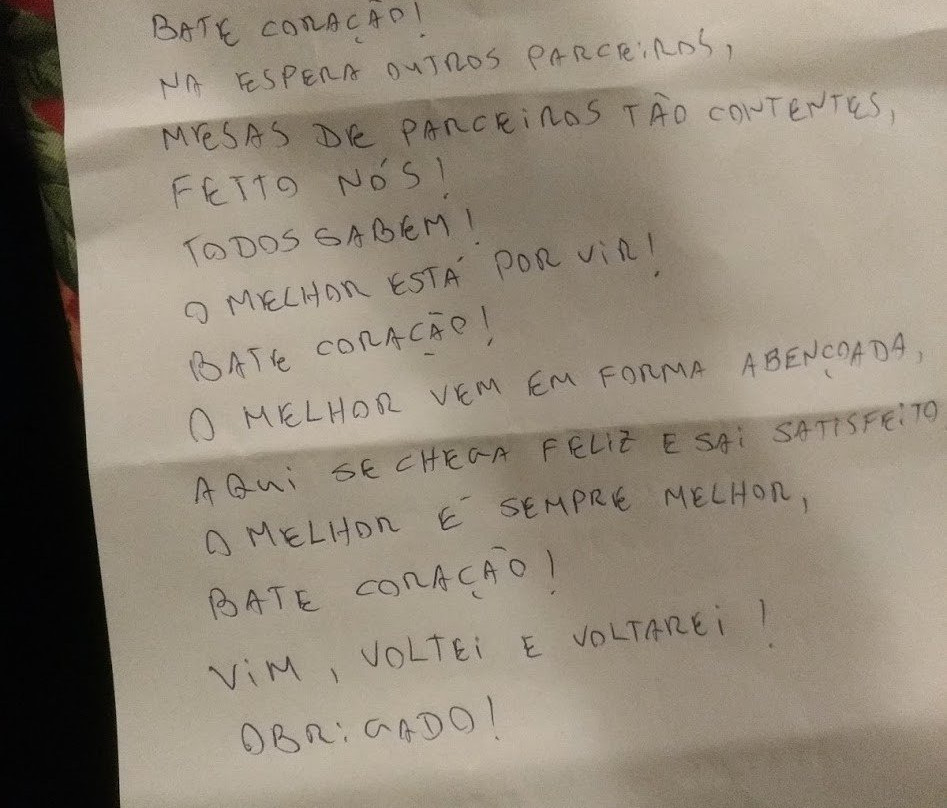 BATE CORAÇÃO!
NA ESPERA OUTROS PARCEIROS,
MESAS DE PARCEIROS TÃO CONTENTES,
FEITO NÓS!
TODOS SABEM!
O MELHOR ESTÁ POR VIR!
BATE CORAÇÃO!
O MELHOR VEM EM FORMA ABENÇOADA,
AQUI SE CHEGA FELIZ E SAI SATISFEITO
O MELHOR É SEMPRE MELHOR,
BATE CORAÇÃO!
VIM, VOLTEI E VOLTAREI!
OBRIGADO!